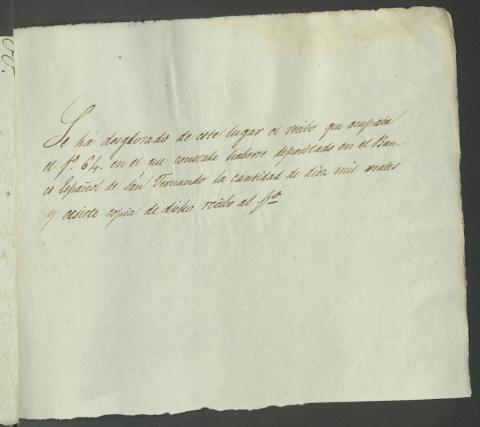 Se há desglosado de este lugar el recibo que ocupaba
el fº. 64. en el que constaba haberse depositado en el Ban-
co Español de San Fernando la cantidad de diez mil reales
y ecsiste copia de dicho recibo al fº